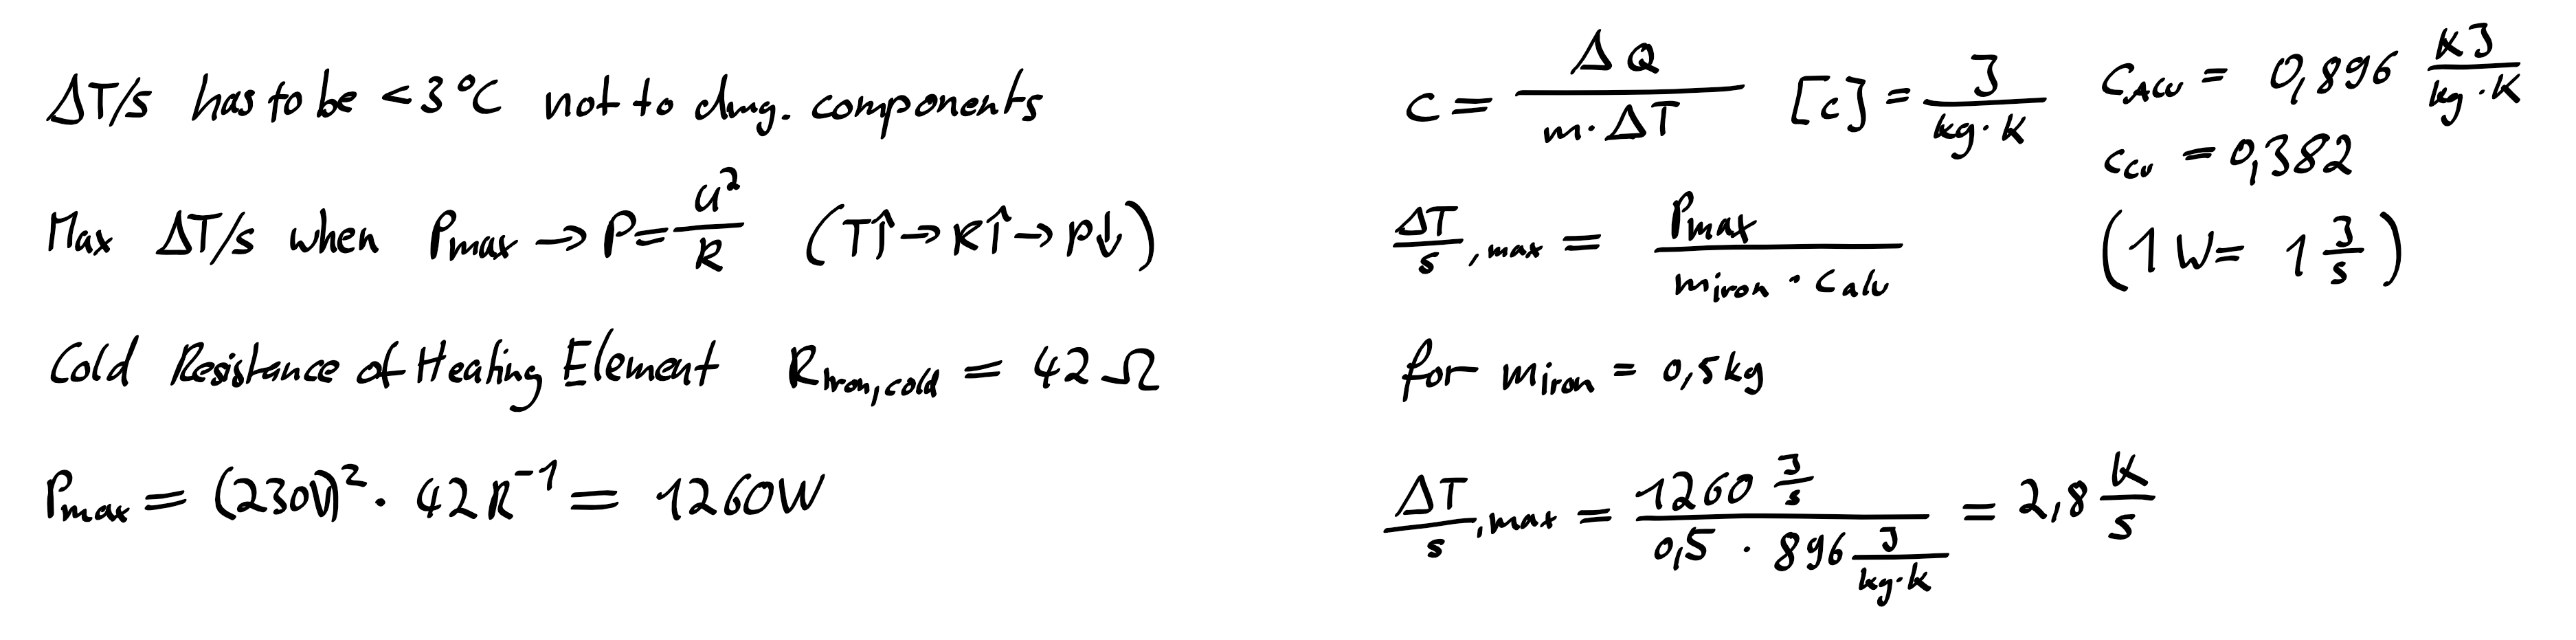 ΔT/s has to be < 3°C not to dmg. components
Max ΔT/s when Pmax → P = U²/R (T↑ → R↑ → P↓)
Cold Resistance of Heating Element R_Iron,cold = 42 Ω
Pmax = (230V)² · 42 R⁻¹ = 1260W
c = ΔQ / (m · ΔT) [c] = J / (kg · K) c_Alu = 0,896 kJ / (kg · K)
c_cu = 0,382
ΔT/s ,max = Pmax / (m_iron · c_alu) (1 W = 1 J/s)
for m_iron = 0,5 kg
ΔT/s ,max = 1260 J/s / (0,5 · 896 J/(kg · K)) = 2,8 K/s